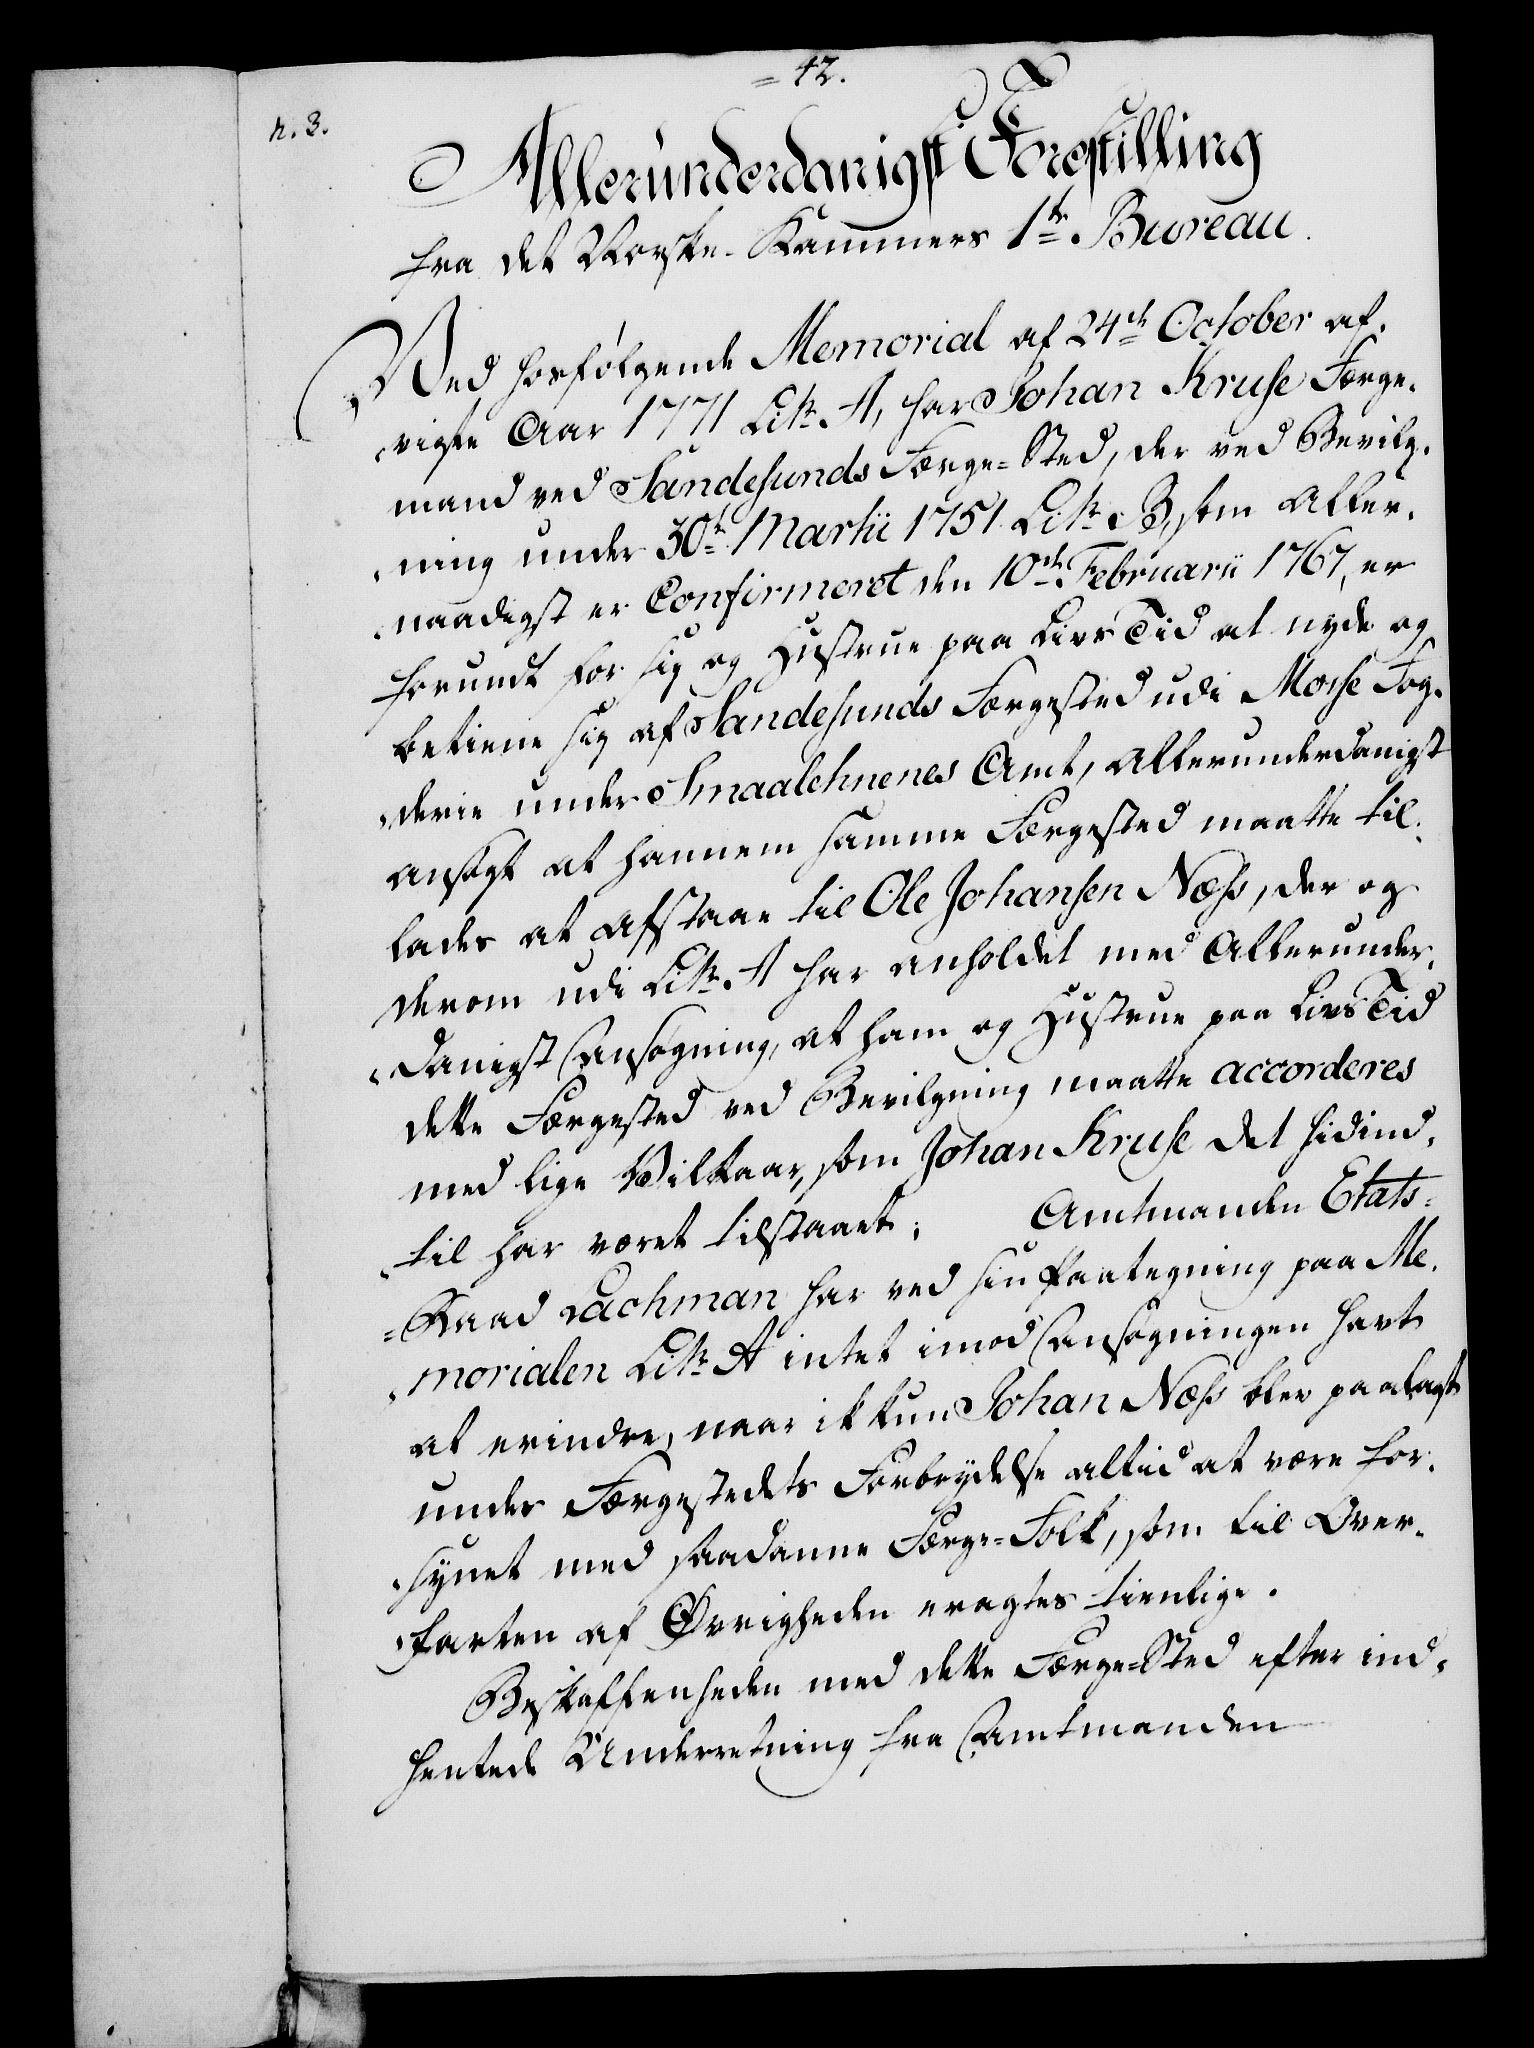 = 42.
n. 3.
Allerunderdanigst Forestilling
fra det Norske Kammers 1te Bureau.
Ved hosfølgende Memorial af 24de October af-
vigte Aar 1771 Litr. A, har Johan Kruse Færge-
mand ved Sandesunds Færge-Sted, der ved Bevilg-
ning under 30te Martii 1751 Litr. B, som Aller-
naadigst er Confirmeret den 10de Februarii 1767, er
forundt for sig og Hustrue paa Livs Tid at nyde og
betiene sig af Sandesunds Færgested udi Mosse Fog-
derie under Smaalehnenes Amt, Allerunderdanigst
ansøgt at hannem samme Færgested maatte til-
lades at afstaae til Ole Johansen Næss, der og
derom udi Litr. A har anholdet med Allerunder-
danigst Ansøgning, at ham og Hustrue paa Livs Tid
dette Færgested ved Bevilgning maatte accorderes
med lige Vilkaar, som Johan Kruse det hidind-
til har været tilstaaet; Amtmanden Etats-
Raad Lachman har ved sin Paategning paa Me-
morialen Litr. A intet imod Ansøgningen havt
at erindre, naar ikkun Johan Næss blev paalagt
under Færgestedets Forbrydelse altid at være for-
synet med saadanne Færge-Folk, som til Over-
farten af Øvrigheden eragtes tienlige.
Beskaffenheden med dette Færge-Sted efter ind-
hentede Underretning fra Amtmanden